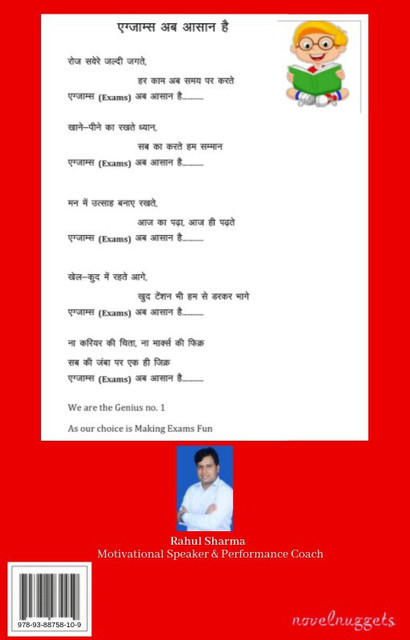 एग्जाम्स अब आसान है
रोज सवेरे जल्दी जगते,
हर काम अब समय पर करते
एग्जाम्स (Exams) अब आसान है...........
खाने–पीने का रखते ध्यान,
सब का करते हम सम्मान
एग्जाम्स (Exams) अब आसान है...........
मन में उत्साह बनाए रखते,
आज का पढ़ा, आज ही पढ़ते
एग्जाम्स (Exams) अब आसान है...........
खेल–कुद में रहते आगे,
खुद टेंशन भी हम से डरकर भागे
एग्जाम्स (Exams) अब आसान है...........
ना करियर की चिता, ना मार्क्स की फिक्र
सब की जंबा पर एक ही जिक्र
एग्जाम्स (Exams) अब आसान है...........
We are the Genius no. 1
As our choice is Making Exams Fun
Rahul Sharma
Motivational Speaker & Performance Coach
978-93-88758-10-9
novelnuggets